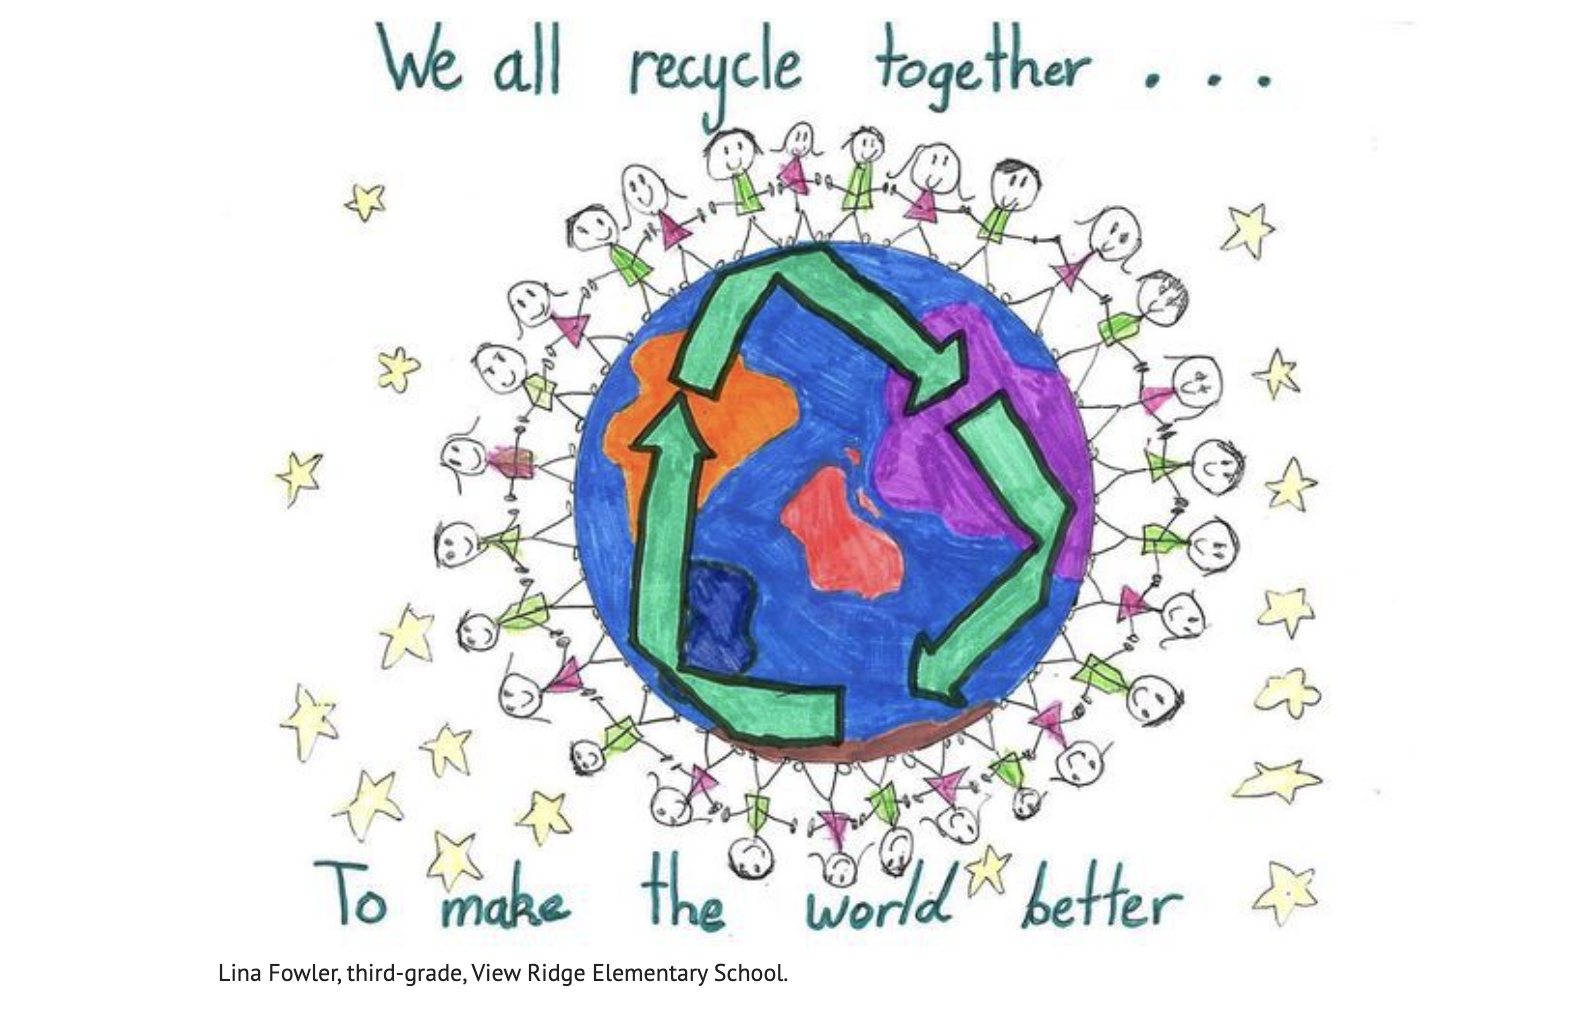 We all recycle together . . .
To make the world better
Lina Fowler, third-grade, View Ridge Elementary School.